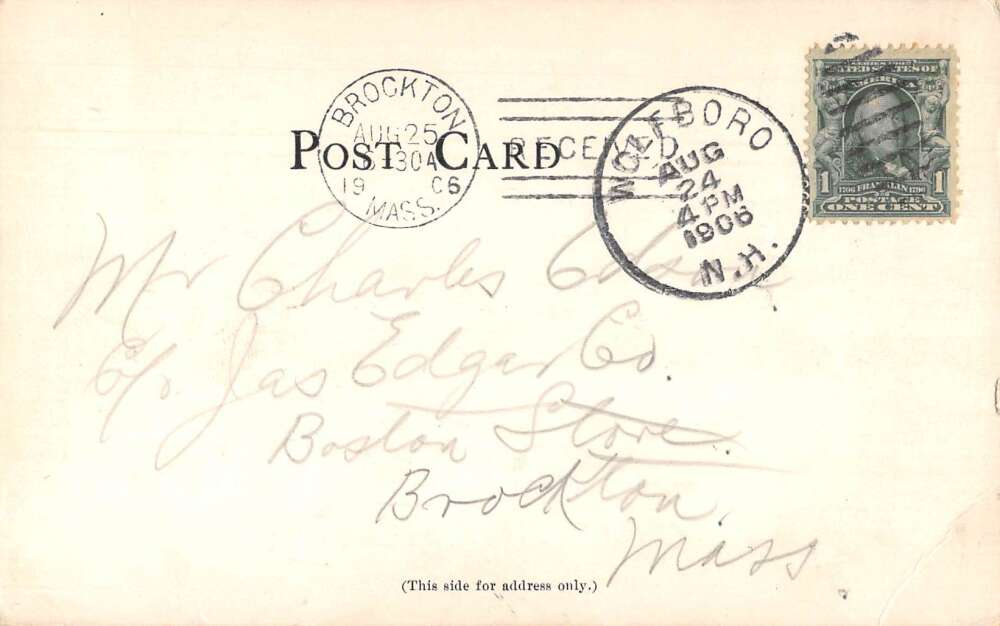 SERIES 1902
UNITED STATES OF
AMERICA
1706 FRANKLIN 1790
1 1
POSTAGE
ONE CENT
BROCKTON
AUG 25
30A
19 06
MASS.
RECEIVED
WOLFEBORO
AUG
24
4 PM
1906
N.H.
POST CARD
Mr Charles
c/o Jas Edgar Co.
Boston Store.
Brockton,
Mass
(This side for address only.)